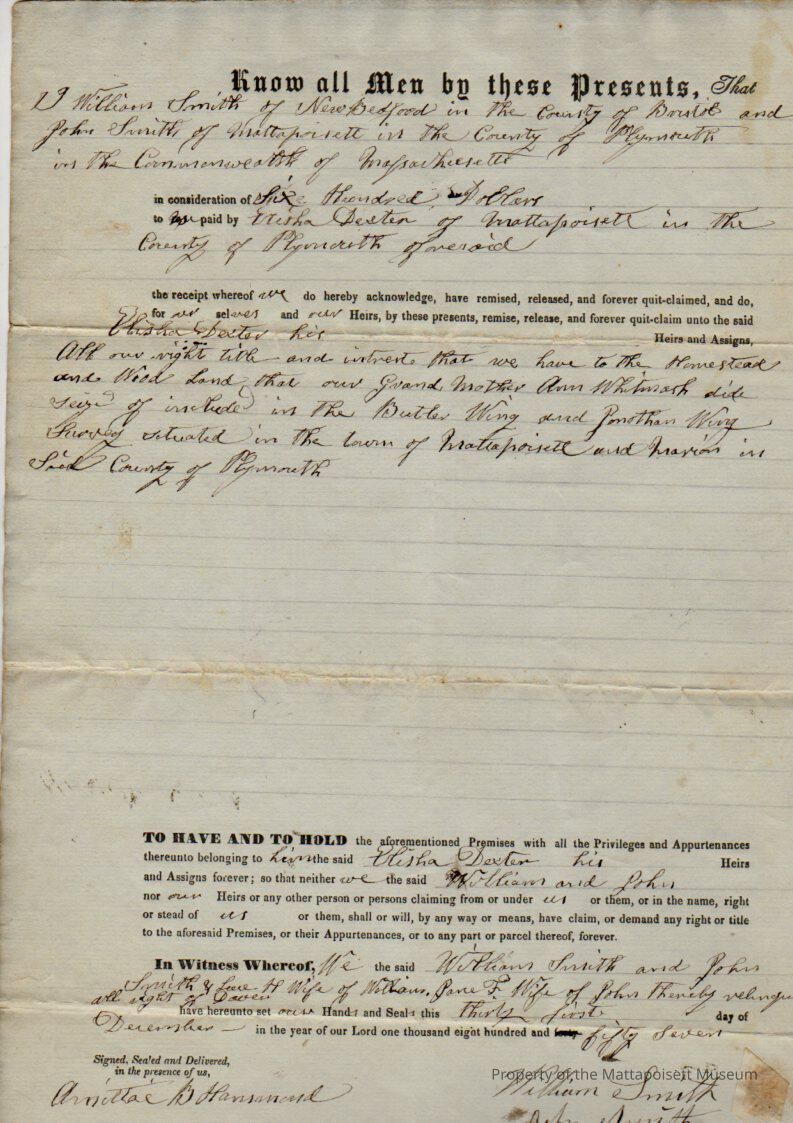 Know all Men by these Presents, That
I William Smith of New Bedford in the County of Bristol and
John Smith of Mattapoisett in the County of Plymouth
in the Commonwealth of Massachusetts
in consideration of Six Hundred Dollars
to us paid by Elisha Dexter of Mattapoisett in the
County of Plymouth aforesaid
the receipt whereof we do hereby acknowledge, have remised, released, and forever quit-claimed, and do,
for our selves and our Heirs, by these presents, remise, release, and forever quit-claim unto the said
Elisha Dexter his Heirs and Assigns,
All our right title and intrest that we have to the Homestead
and Wood Land that our Grand Mother Ann Whitmash did
seize of in the Butler Wing and Jonathan Wing
Survey situated in the town of Mattapoisett and Marion in
Said County of Plymouth
TO HAVE AND TO HOLD the aforementioned Premises with all the Privileges and Appurtenances
thereunto belonging to him the said Elisha Dexter his Heirs
and Assigns forever; so that neither we the said William and John
nor our Heirs or any other person or persons claiming from or under us or them, or in the name, right
or stead of us or them, shall or will, by any way or means, have claim, or demand any right or title
to the aforesaid Premises, or their Appurtenances, or to any part or parcel thereof, forever.
In Witness Whereof, We the said William Smith and John
Smith & H Wife of William, Jane F. Wife of John thereby
all right of Dower
have hereunto set our Hands and Seals this thirty first day of
December in the year of our Lord one thousand eight hundred and forty fifty Seven
Signed, Sealed and Delivered,
in the presence of us,
Property of the Mattapoisett Museum
B Hammond
William Smith
John Smith